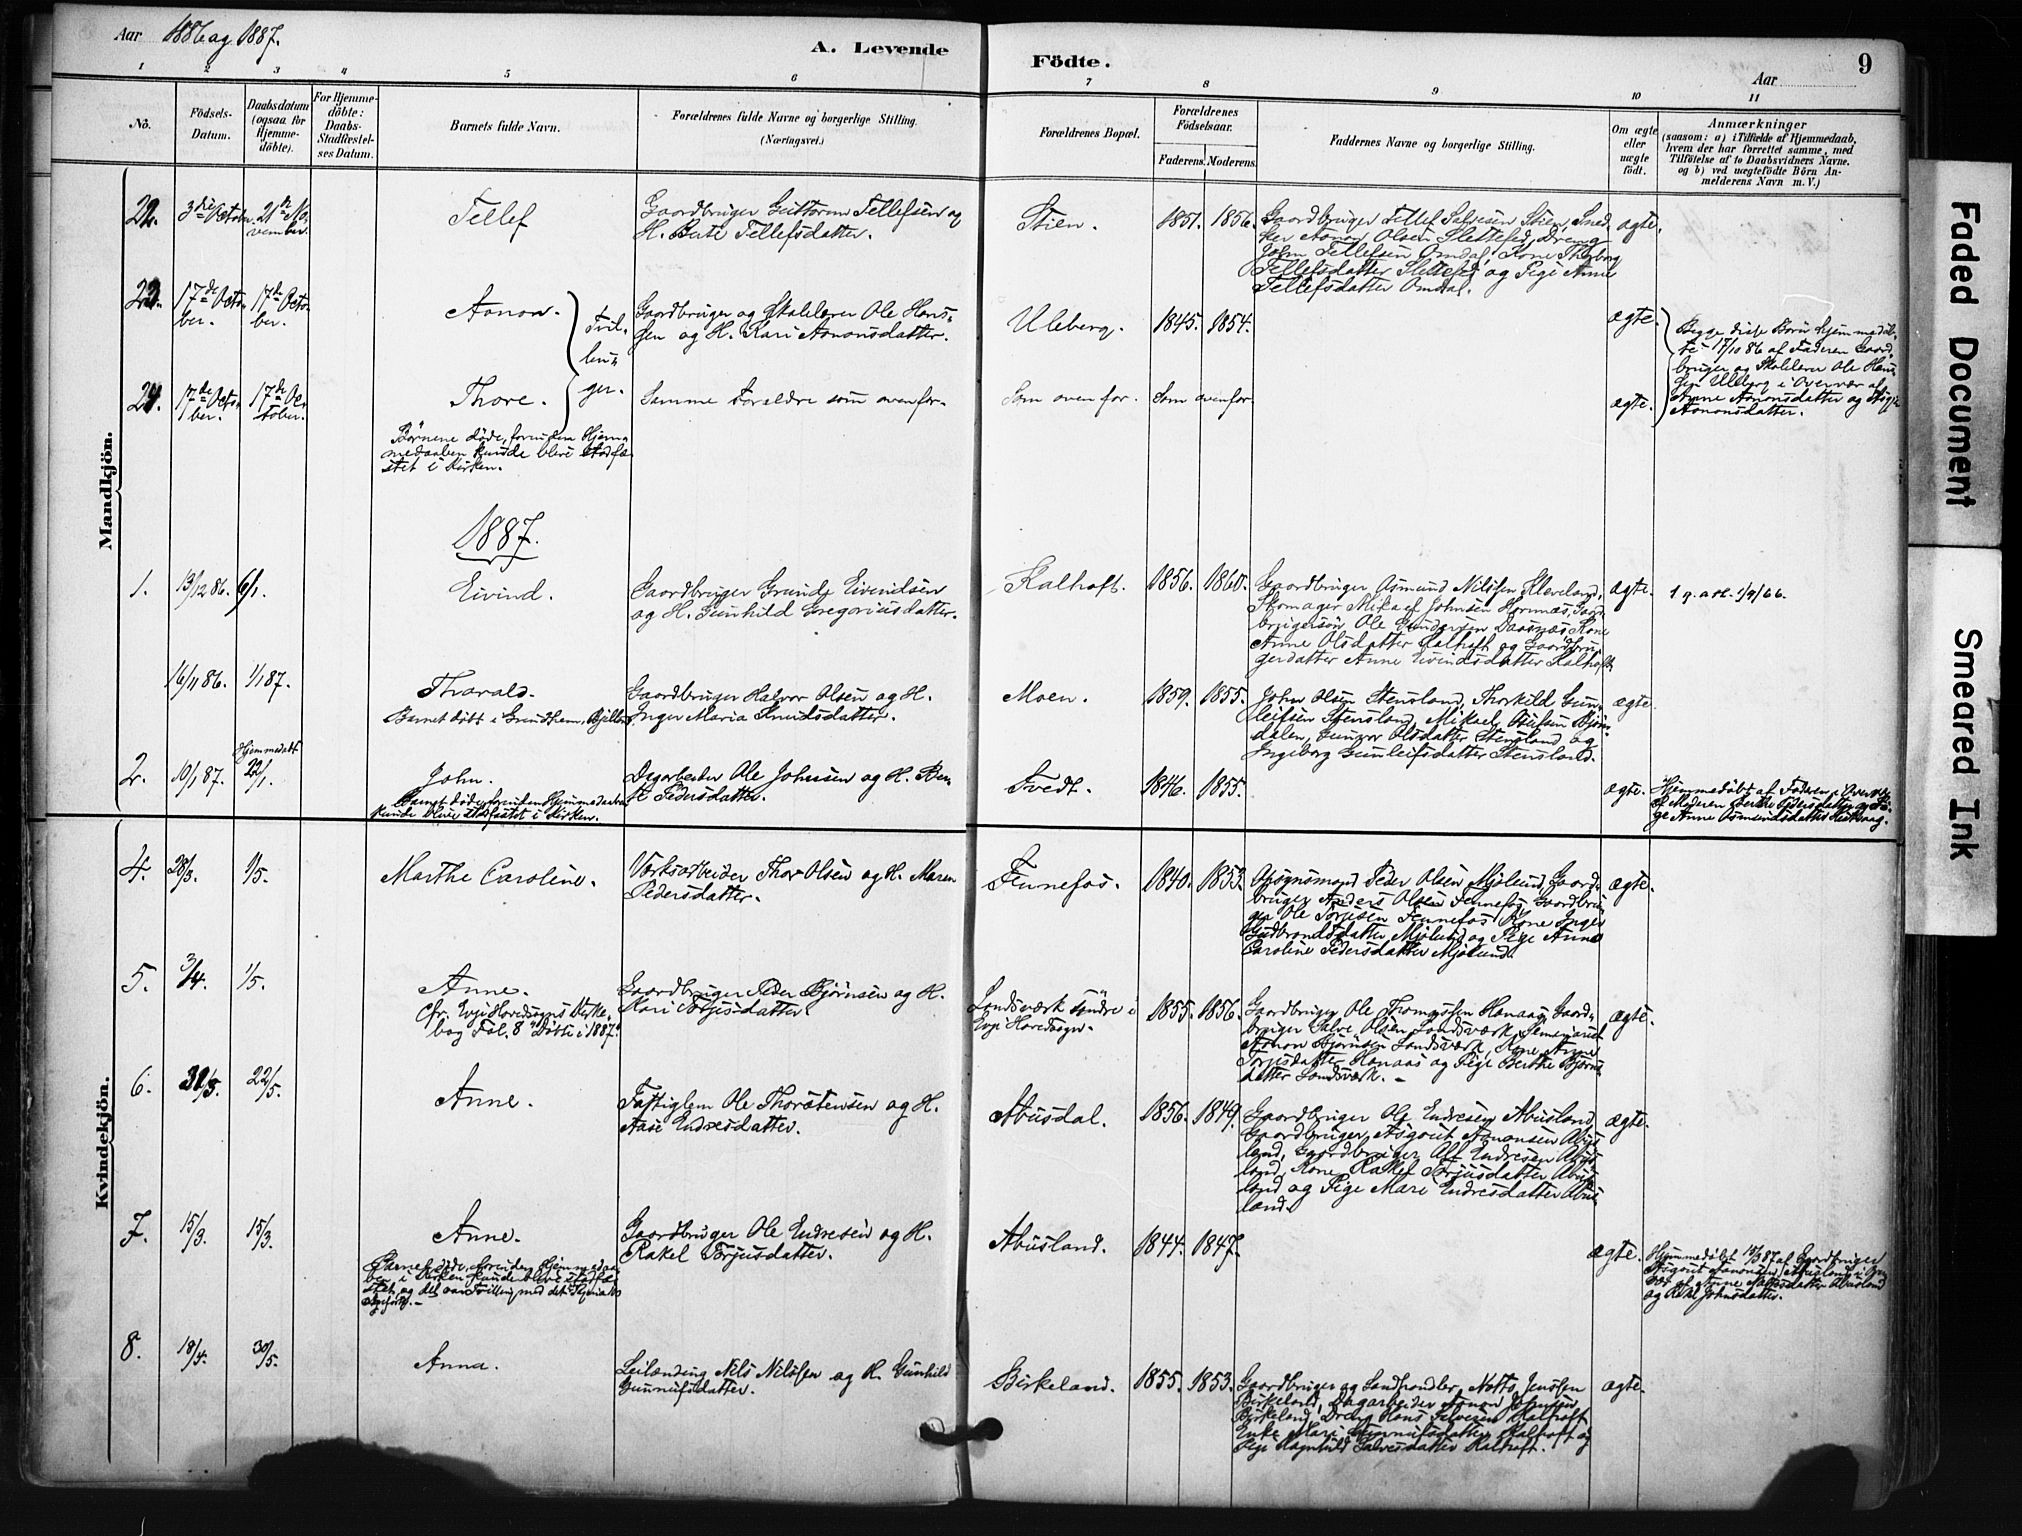 Aar 1886 og 1887.
A. Levende
Födte.
Aar
9
1 2 3 4 5 6 7 8 9 10 11
No.
Födsels-
Datum.
Daabsdatum
(ogsaa for
Hjemme-
döbte).
For Hjemme-
döbte:
Daabs-
Stadfæstel-
ses Datum.
Barnets fulde Navn.
Forældrenes fulde Navne og borgerlige Stilling.
(Næringsvei.)
Forældrenes Bopæl.
Forældrenes
Födselsaar.
Faderens. Moderens.
Faddernes Navne og borgerlige Stilling.
Om ægte
eller
uægte
födt.
Anmærkninger
(saasom: a) i Tilfælde af Hjemmedaab,
hvem der har forrettet samme, med
Tilföielse af to Daabsvidners Navne.
og b) ved uægtefödte Börn An-
melderens Navn m. V.)
Mandkjön.
22. 3die Octobr. 21de No-
vember.
Tellef
Gaardbruger Guttorm Tellefsen og
H. Berte Tellefsdatter.
Stien.
1851. 1856.
Gaardbruger Tellef Salvesen Stien, Sned-
ker Aanon Olsen Slettefed, Dreng
John Tellefsen Omdal, Kone Thorborg
Tellefsdatter Slettefed og Pige Anne
Tellefsdatter Omdal.
ægte.
23. 17de Octo-
ber. 17de Octo-
ber.
Aanon.
Tvil-
lin-
ger.
Gaardbruger og Skolelærer Ole Hans-
sen og H. Kari Aanonsdatter.
Uleberg.
1845. 1854.
ægte.
Begge disse Børn hjemmedøb-
te 17/10 86 af Faderen Gaard-
bruger og Skolelærer Ole Han-
sen Uleberg i Overvær af
Anne Aanonsdatter og
Aanonsdatter.
24. 17de Octo-
ber. 17de Oc-
tober.
Thore.
Samme Forældre som ovenfor.
Som ovenfor. Som ovenfor.
ægte.
Børnene døde, forinden Hjem-
medaaben kunde blive stadfæ-
stet i Kirken.
1887.
1. 13/12 86. 6/1.
Eivind.
Gaardbruger Grunde Eivindsen
og H. Gunhild Gregoriusdatter.
Kalhoft.
1856. 1860.
Gaardbruger Osmund Nilssen Kleveland,
Skomager Mikael Johnsen Hornnæs, Gaard-
brugersøn Ole Gundersen Daasnæs, Kone
Anne Olsdatter Kalhoft og Gaardbru-
gerdatter Anne Eivindsdatter Kalhoft
ægte.
16/11 86. 1/1 87.
Thorvald.
Barnet døbt i Grendi
Gaardbruger Halvor Olsen og H.
Inger Maria Knudsdatter.
Moen.
1859. 1855.
John Olsen Stensland, Thorkild Gun-
leifsen Stensland, Mikael Olufsen Bjørn-
dalen, Gunvor Olsdatter Stensland og
Ingeborg Gunleifsdatter Stensland.
ægte
2. 10/1 87. Hjemmedøbt
22/1.
John.
Barnet døde forinden Hjemmedaaben
kunde blive stadfæstet i Kirken.
Dagarbeider Ole Johnsen og H. Ber-
te Pedersdatter.
Tvedt.
1846. 1855.
ægte.
Hjemmedøbt af Faderen i Overvær
af Moderen Berthe Pedersdatter og Pi-
ge Anne Osmundsdatter
Kvindekjön.
4. 28/3. 1/5.
Marthe Caroline.
Værksarbeider Thor Olsen og H. Maren
Pedersdatter.
Fennefos.
1840. 1853.
Opsynsmand Peder Olsen Mjølund, Gaard-
bruger Anders Olsen Fennefos, Gaardbru-
ger Ole Torjesen Fennefos, Kone Inger
Gudbrandsdatter Mjølund og Pige Anne
Caroline Pedersdatter Mjølund.
ægte.
5. 3/4. 1/5.
Anne.
Cfr. Evje Hovedsogns Kirke-
bog Fol. 8 Døbte i 1887.
Gaardbruger Peder Bjørnsen og H.
Kari Torjusdatter.
Landsværk søndre i
Evje Hovedsogn.
1855. 1856.
Gaardbruger Ole Thomassen Hanaas, Gaard-
bruger Salve Olsen Landsværk, Seminarist
Aanon Bjørnsen Landsværk, Kone Anne
Torjusdatter Hanaas og Pige Berthe Bjørns-
datter Landsværk.
ægte.
6. 31/3. 22/5.
Anne.
Fattiglem Ole Thorstensen og H.
Aase Endresdatter.
Abusdal.
1856. 1849.
Gaardbruger Ole Endresen Abusland,
Gaardbruger Asgout Aanonsen Abus-
land, Gaardbruger Alf Endresen Abus-
land, Kone Rakel Torjusdatter Abus-
land og Pige Mari Endresdatter Abus-
land.
ægte.
7. 15/3. 15/3.
Anne.
Barnet døde, forinden Hjemmedaa-
ben i Kirken kunde blive stadfæ-
stet, og det var Tvilling med det
anførte.
Gaardbruger Ole Endresen og H.
Rakel Torjusdatter.
Abusland.
1844. 1847.
ægte.
Hjemmedøbt 15/3 87 af Gaardbruger
Asgout Aanonsen Abusland i Over-
vær af Anne datter Abusland
og Rakel Johnsdatter.
8. 18/4. 30/5.
Anna.
Leilænding Nils Nilssen og H. Gunhild
Gunnufsdatter.
Birkeland.
1855. 1853.
Gaardbruger og Landhandler Notto Jenssen
Birkeland, Dagarbeider Aanon Johnsen
Birkeland, Dreng Hans Salvesen Kalhoft,
Enke Mari Gunnufsdatter Kalhoft og
Pige Ragnhild Salvesdatter Kalhoft.
ægte.
Faded Document
Smeared Ink